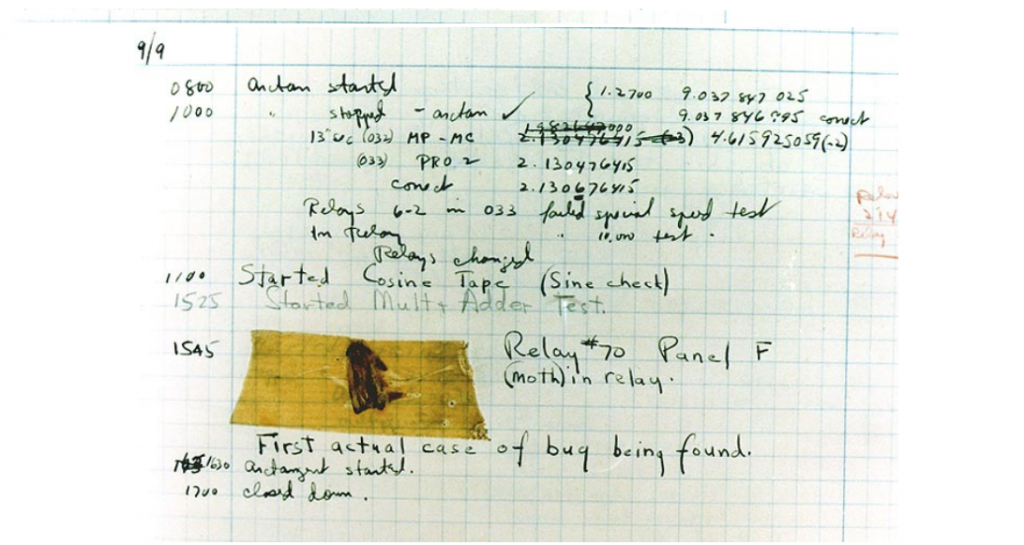 9/9
0800 arctan started { 1.2700 9.037 847 025
1000 " stopped - arctan ✓ 9.037 846 995 correct
13"uc (032) MP - MC 2.130476415 (-3) 4.615925059(-2)
(033) PRO 2 2.130476415
correct 2.130676415
Relays 6-2 in 033 failed special speed test
In Relay " 10.000 test .
Relays changed
Relay
1100 Started Cosine Tape (Sine check)
1525 Started Mult + Adder Test.
1545 Relay #70 Panel F
(moth) in relay.
First actual case of bug being found.
1630 arctangent started.
1700 closed down.